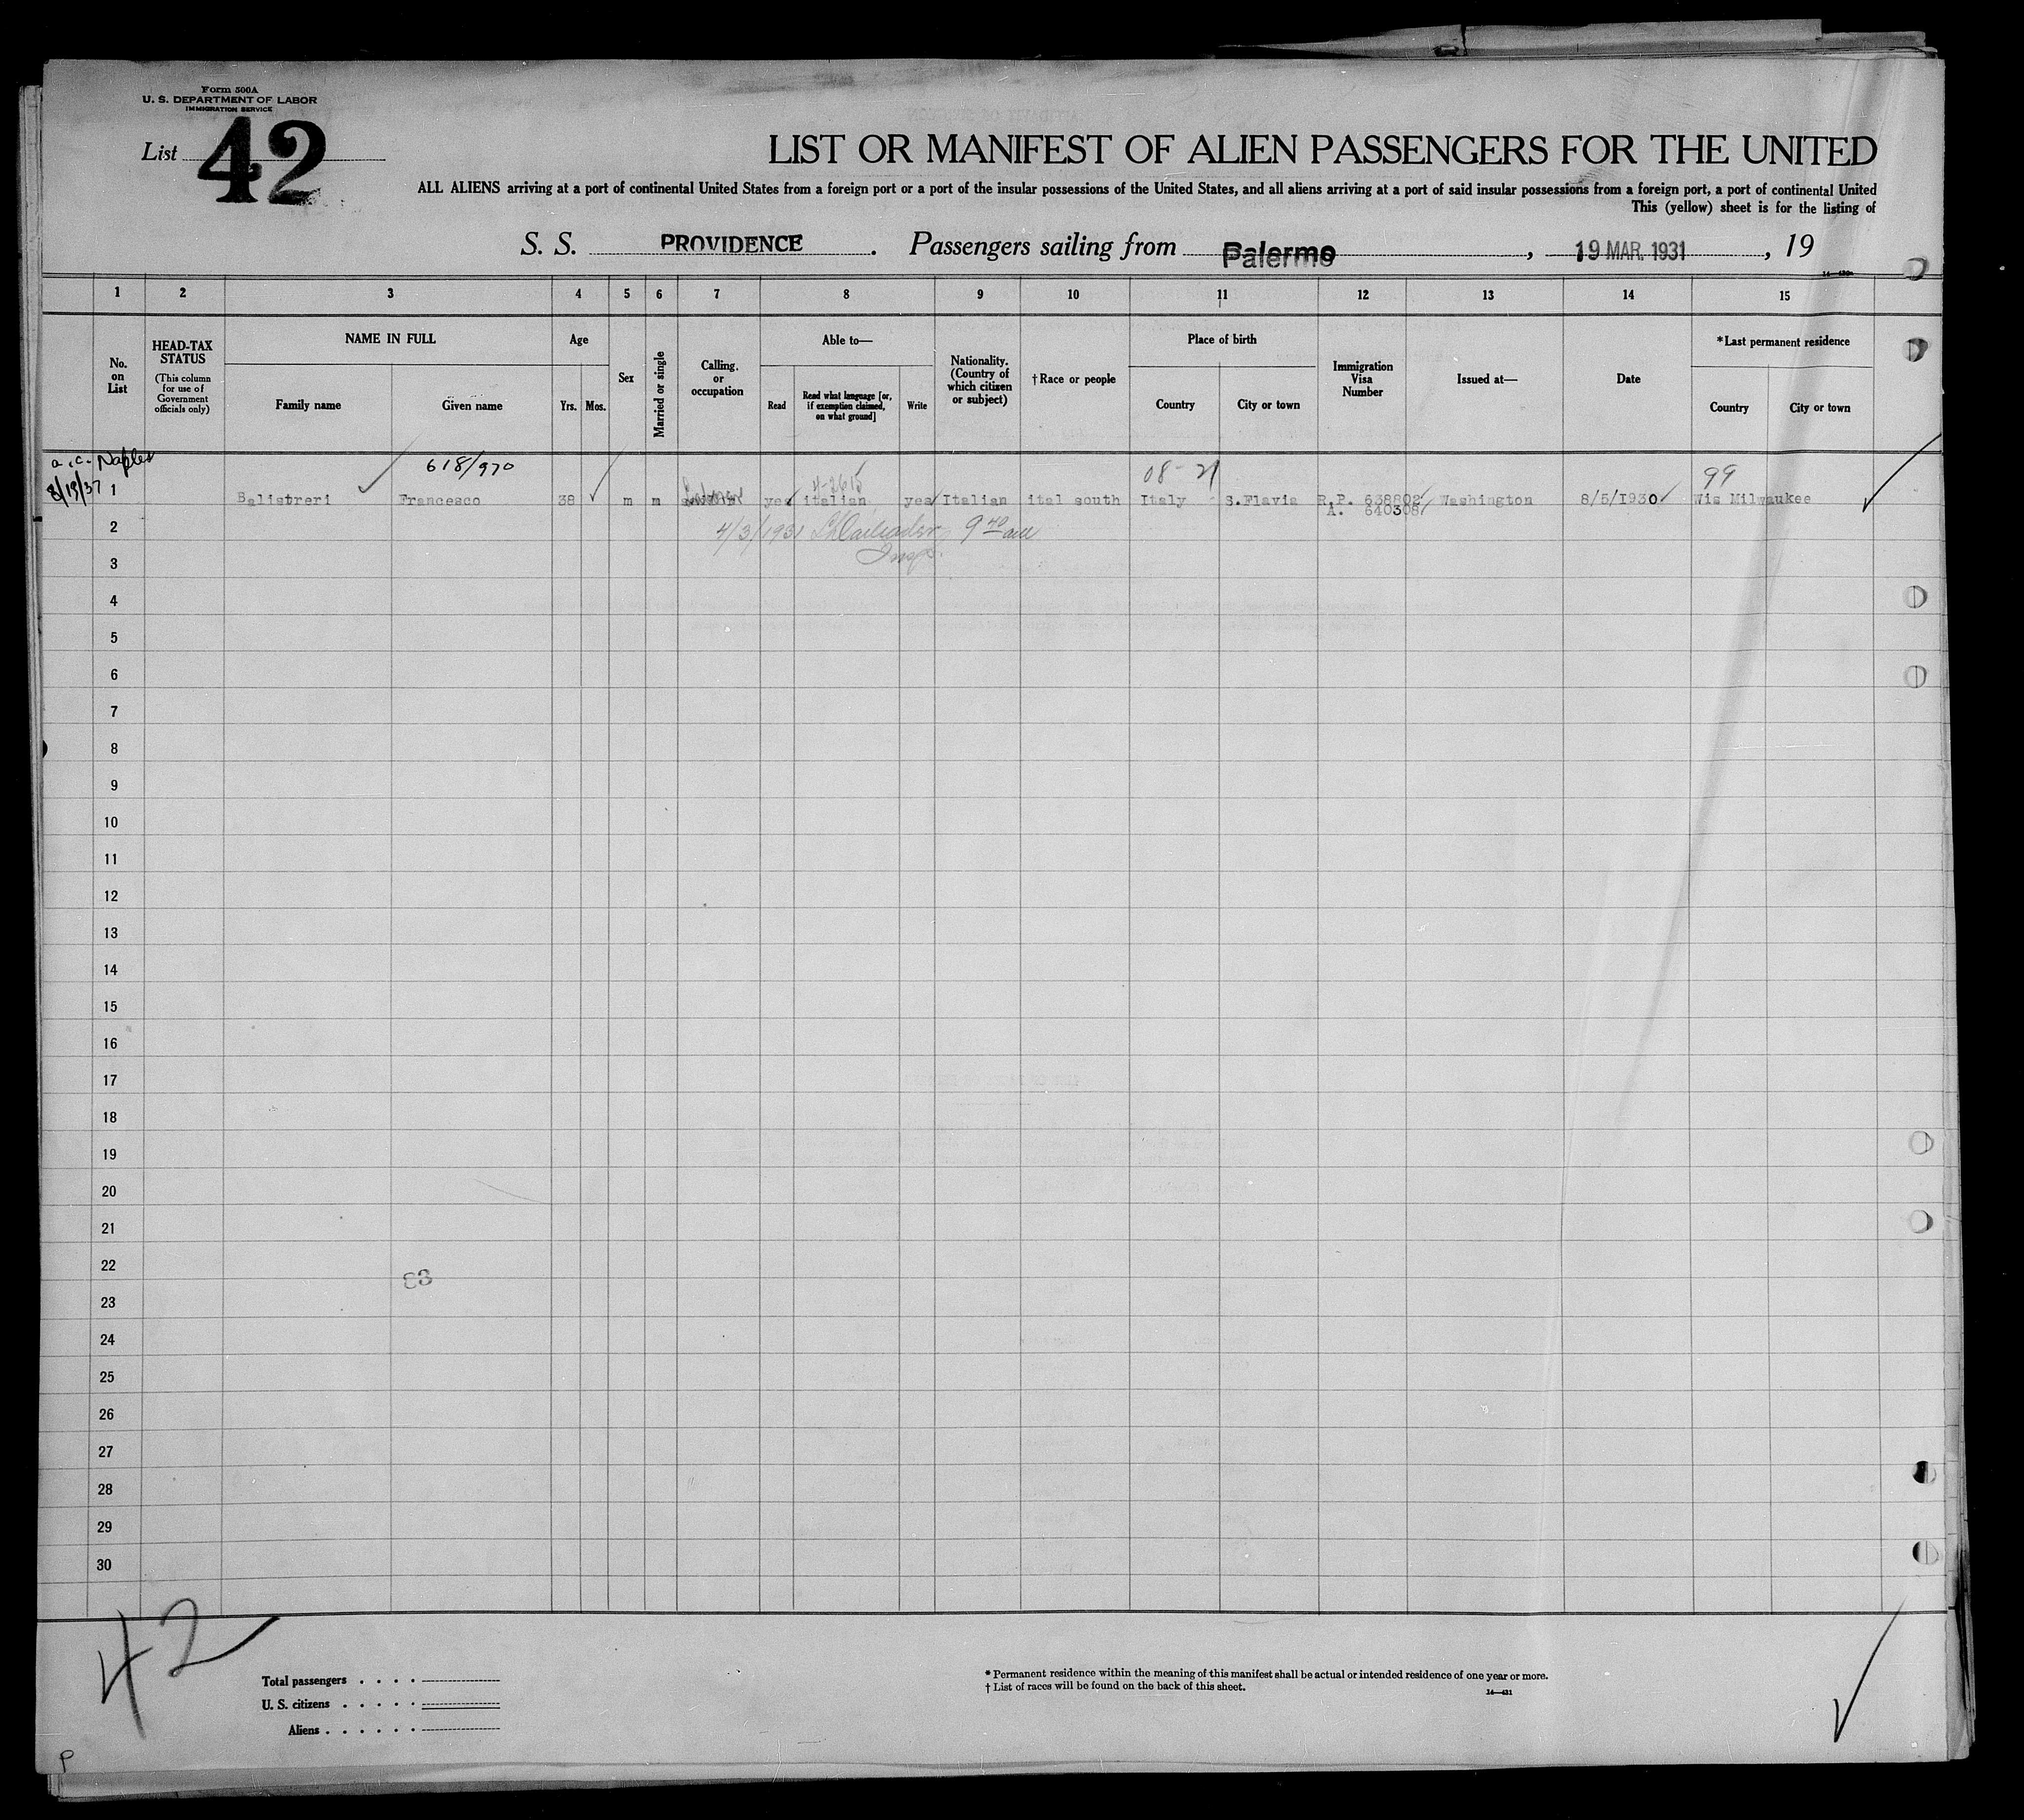 Form 500A
U. S. DEPARTMENT OF LABOR
IMMIGRATION SERVICE
List 42
LIST OR MANIFEST OF ALIEN PASSENGERS FOR THE UNITED
ALL ALIENS arriving at a port of continental United States from a foreign port or a port of the insular possessions of the United States, and all aliens arriving at a port of said insular possessions from a foreign port, a port of continental United
This (yellow) sheet is for the listing of
S. S. PROVIDENCE. Passengers sailing from Palermo, 19 MAR. 1931, 19
1 2 3 4 5 6 7 8 9 10 11 12 13 14 15
No. on List
HEAD-TAX STATUS
(This column for use of Government officials only)
NAME IN FULL
Family name
Given name
Age
Yrs. Mos.
Sex
Married or single
Calling, or occupation
Able to—
Read
Read what language [or, if exemption claimed, on what ground]
Write
Nationality. (Country of which citizen or subject)
†Race or people
Place of birth
Country
City or town
Immigration Visa Number
Issued at—
Date
*Last permanent residence
Country
City or town
a.c. Naples 618/970 08-21 99
8/19/37 1 Balistreri Francesco 38 m m yes italian yes Italian ital south Italy S.Flavia R.P. 638802 Washington 8/5/1930 Wis Milwaukee
A. 640308
2 4/3/1931 9 40 am
Insp.
3
4
5
6
7
8
9
10
11
12
13
14
15
16
17
18
19
20
21
22
23
24
25
26
27
28
29
30
42
Total passengers . . . .
U. S. citizens . . . . .
Aliens . . . . . .
* Permanent residence within the meaning of this manifest shall be actual or intended residence of one year or more.
† List of races will be found on the back of this sheet.
14—421
P